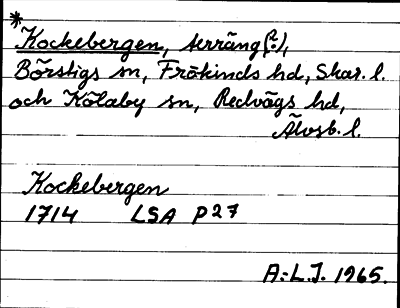 *
Kockebergen, terräng(?),
Börstigs sn, Frökinds hd, Skar. l.
och Kölaby sn, Redvägs hd,
Älvsb. l.
Kockebergen
1714 LSA P27
A.L.J. 1965.